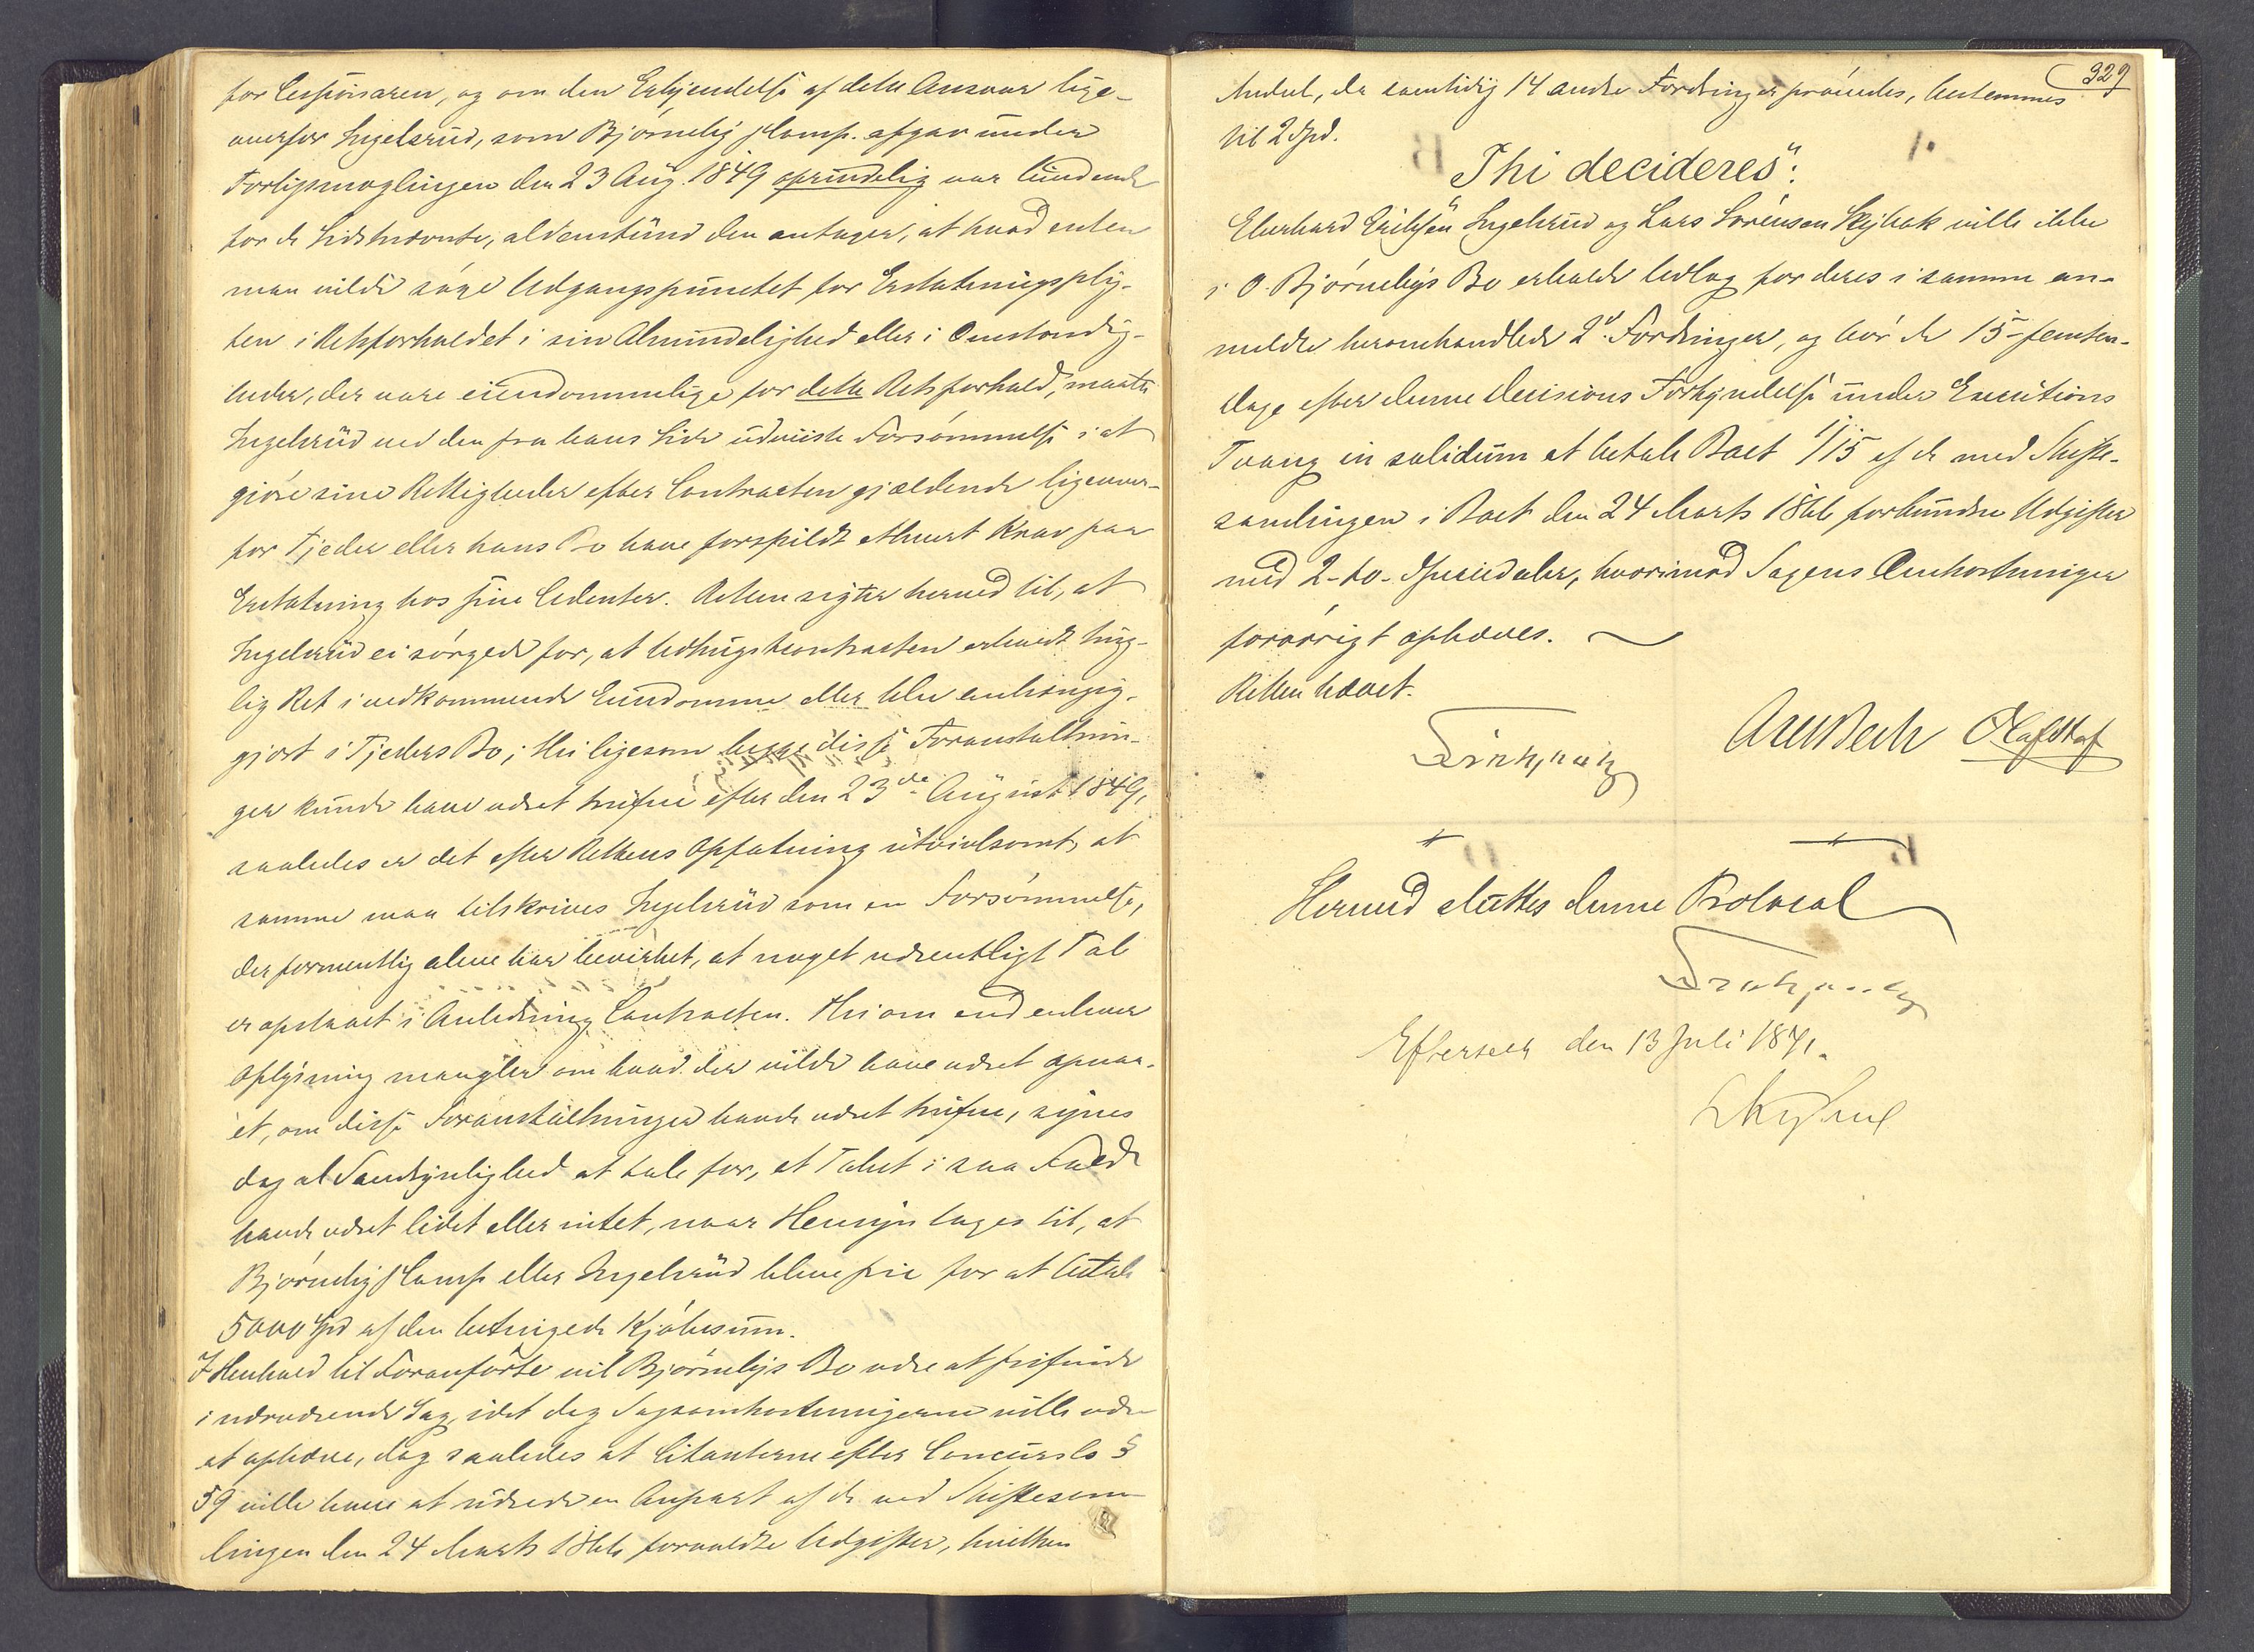 for Cessionaren, og om den Erkjendelse af dette Ansvar lige-
overfor Ingelsrud, som Bjørneby & Comp. afgav under
Forligsmæglingen den 23 Aug. 1849 oprindelig var bindende
for de Sidstnævnte, aldenstund den antager, at hvad enten
man vilde søge Udgangspunctet for Erstatningsplig-
ten i Retsforholdet i sin Almindelighed eller i Omstændig-
heder, der vare eiendommelige for dette Retsforhold, maatte
Ingelsrud ved den fra hans Side udviiste Forsømmelse i at
gjøre sine Rettigheder efter Contracten gjældende ligeover-
for Tjeder eller hans Bo have forspildt ethvert Krav paa
Erstatning hos sine Cedenter. Retten sigter herved til, at
Ingelsrud ei sørgede for, at Udhugstcontracten erholdt ting-
lig Ret i vedkommende Eiendomme eller blev anhængig-
gjort i Tjeders Bo; thi ligesom begge disse Foranstaltnin-
ger kunde have været trufne efter den 23de August 1849,
saaledes er det efter Rettens Opfatning utvivlsomt, at
samme maa tilskrives Ingelsrud som en Forsømmelse,
der formentlig alene har bevirket, at noget væsentligt Tab
er opstaaet i Anledning Contracten. Thi om end enhver
Oplysning mangler om hvad der vilde have været opnaa-
et, om disse Foranstaltninger havde været trufne, synes
dog al Sandsynlighed at tale for, at Tabet i saa Fald
havde været lidet eller intet, naar Hensyn tages til, at
Bjørneby & Comp eller Ingelsrud bleve frie for at betale
5000 Spd af den betingede Kjøbesum.
I Henhold til Foranførte vil Bjørnebys Bo være at frifinde
i nærværende Sag, idet dog Sagsomkostningerne ville være
at ophæve, dog saaledes at Citanterne efter Concursls §
59 ville have at udrede en Anpart af de ved Skiftesam-
lingen den 24 Marts 1866 forvoldte Udgifter, hvilken
329
Andel, da samtidig 14 andre Fordringer prøvedes, bestemmes
til 2 Spd.
"Thi decideres":
Eberhard Eriksen Ingelsrud og Lars Sørensen Skybak ville ikke
i O. Bjørnebys Bo erholde Udlæg for deres i samme an-
meldte heromhandlede 2de Fordringer, og bør de 15-femten-
dage efter denne Decisions Forkyndelse under Executions
Tvang in solidum at betale Boet 1/15 af de med Skifte-
samlingen i Boet den 24 Marts 1866 forbundne Udgifter
med 2-to-Speciedaler, hvorimod Sagens Omkostninger
forøvrigt ophæves.
Retten hævet.
Hermed sluttes denne Protocol
Efterseet den 13 Juli 1871.